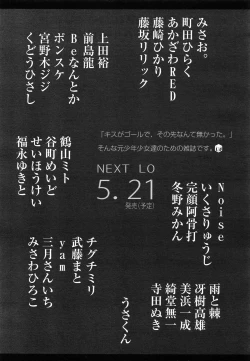 みさお。
町田ひらく
あかざわRED
藤崎ひかり
藤坂リリック
上田裕
前島龍
Beなんとか
ポンスケ
宮野木ジジ
くどうひさし
「キスがゴールで、その先なんて無かった。」
そんな元少年少女達のための雑誌です。
NEXT LO
5.21
発売(予定)
鶴山ミト
谷町めいど
せいほうけい
福永ゆきと
Noise
いくさりゅうじ
完顔阿骨打
冬野みかん
雨と棘
冴樹高雄
美浜一成
綺堂無一
寺田ぬき
チグチミリ
武藤まと
yam
三月さんいち
みさわひろこ
うさくん